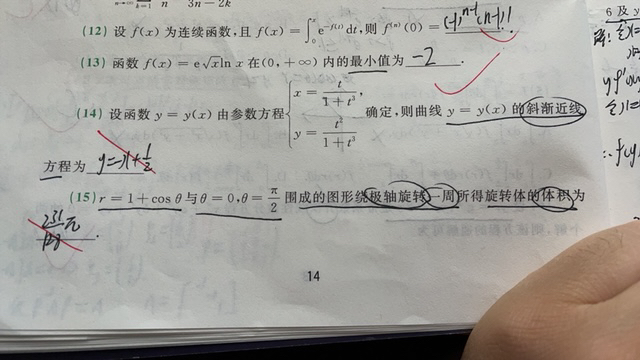 n 3n-2k
(12) 设 f(x) 为连续函数,且 f(x)=∫₀ˣ e^{-f(t)}dt,则 f^{(n)}(0)= (-1)^{n-1}(n-1)! .
(13) 函数 f(x)=e√x ln x 在(0,+∞)内的最小值为 -2 .
(14) 设函数 y=y(x) 由参数方程 { x=t/(1+t³), y=t²/(1+t³) 确定,则曲线 y=y(x) 的斜渐近线
方程为 y=-x+1/2 .
(15) r=1+cosθ 与 θ=0,θ=π/2 围成的图形绕极轴旋转一周所得旋转体的体积为
π .
14
6 及 y
解: